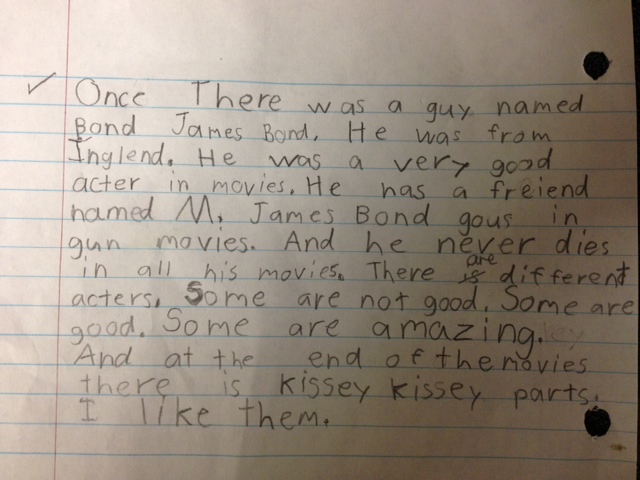 Once There was a guy named
Bond James Bond. He was from
Inglend. He was a very good
acter in movies. He has a freiend
named M. James Bond gous in
gun movies. And he never dies
in all his movies. There are different
acters. Some are not good. Some are
good. Some are amazing.
And at the end of the movies
there is kissey kissey parts.
I like them.